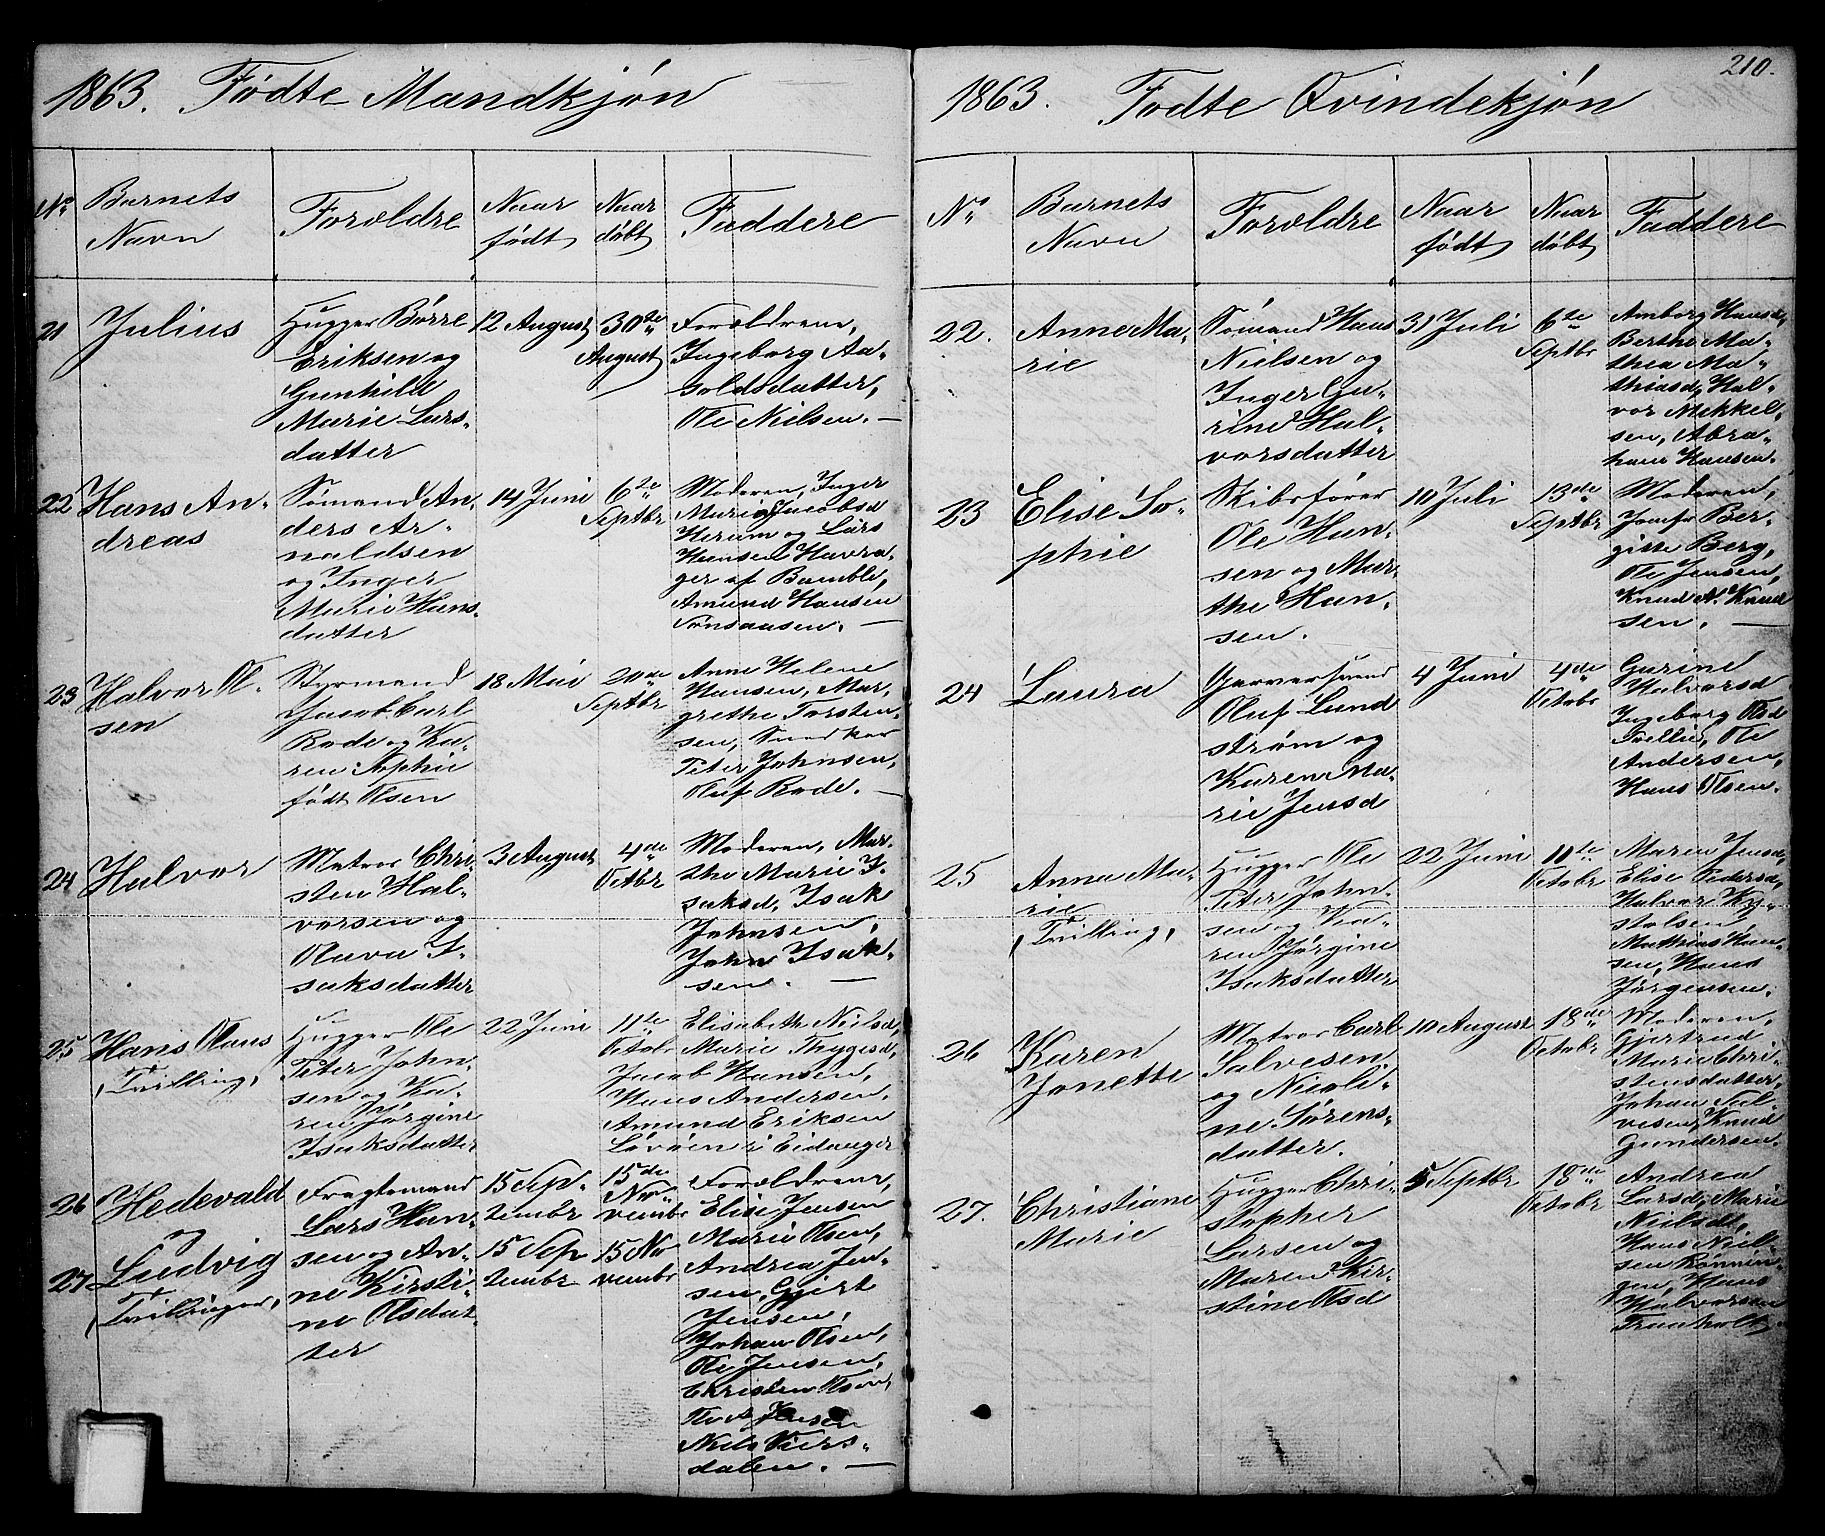 1863. Fødte Mandkjøn
No
Barnets
Navn
Forældre
Naar
født
Naar
døbt
Faddere
21
Julius
Hugger Børre
Eriksen og
Gunhild
Marie Lars-
datter
12 August
30te
August
Forældrene,
Ingeborg Aa-
soldsdatter,
Ole Nielsen. —
22
Hans An-
dreas
Sømand An-
ders Ar-
noldsen
og Inger
Marie Hans-
datter
14 Juni
6te
Septbr
Moderen, Inger
Marie Jacobsd
Herum og Lars
Hansen Havra-
ger af Bamble,
Amund Hansen
23
Halvor Ol-
sen
Styrmand
Jacob Carl
Rode og Ka-
ren Sophie
født Olsen
18 Mai
20de
Septbr
Anne Helene
Hansen, Mar-
grethe Torsten-
sen,
Peter Johnsen,
Oluf Rode. —
24
Halvor
Matros Chri-
sten Hal-
vorsen og
Olava I-
saksdatter
3 August
4de
Octbr
Moderen, Mar-
the Marie I-
saksd, Isak
Johnsen,
John Isak-
sen. —
25
Hans Olaus
(Tvilling,
Hugger Ole
Peter John-
sen og Ka-
ren Jørgine
Isaksdatter
22 Juni
11te
Octobr
Elisabeth Nielsd,
Marie Thygesd,
Jacob Hansen,
Hans Andersen,
Amund Eriksen
Løvøen i Eidanger
26
Hedevald
og
27
Ludvig
(Tvillinger,
Fragtemand
Lars Han-
sen og An-
ne Kirsti-
ne Olsdat-
ter
15 Sep-
tembr
15 Sep
tembr
15de
No-
vembr
15 No
vembr
Forældrene,
Elise Jensen
Marie Olsen,
Andrea Jen-
sen, Gjert
Jensen,
Johan Olsen,
Ole Jensen,
Christen Olsen,
Jensen
Niels Viers-
dalen. —
210.
1863. Fødte Qvindekjøn
No
Barnets
Navn
Forældre
Naar
født
Naar
døbt
Faddere
22.
Anne Ma-
rie
Sømand Hans
Nielsen og
Inger Gu-
rine Hal-
vorsdatter
31 Juli
6te
Septbr
Amborg Hansd,
Berthe Ma-
thea Ma-
thiasd, Hal-
vor Mikkel-
sen, Abra-
ham Hansen.
23
Elise So-
phie
Skibsfører
Ole Han-
sen og Mar-
the Han-
sen.
10 Juli
13de
Septbr
Moderen,
Jomfr Ber-
gitte Berg,
Ole Jensen,
Knud N. Knud
sen. —
24
Laura
Garversvend
Oluf Lund
strøm og
Karen Ma-
rie Jensd
4 Juni
4de
Octobr
Gurine
Halvorsd
Ingeborg Olsd
Ole
Andersen,
Hans Olsen.
25
Anna Ma-
rie
(Tvilling,
Hugger Ole
Peter John-
sen og Ka-
ren Jørgine
Isaksdatter
22 Juni
11te
Octobr
Maren Jensd,
Elise Pedersd,
Halvor Ky-
stolsen,
Mathias Han-
sen, Hans
Jørgensen.
26
Karen
Jonette
Matros Carl
Salvesen
og Nicoli-
ne Sørens-
datter.
10 August
18de
Octobr
Moderen,
Gjertrud
Marie Chri-
stensdatter,
Johan Sal
vesen, Knud
Gundersen.
27.
Christiane
Marie
Hugger Chri-
stopher
Larsen og
Maren Kir-
stine Olsd
5 Septbr
18de
Octobr
Andrea
Larsd, Marie
Nielsdt,
Hans Niel-
sen Rønnin-
gen, Hans
Halvorsen
Traaholt,